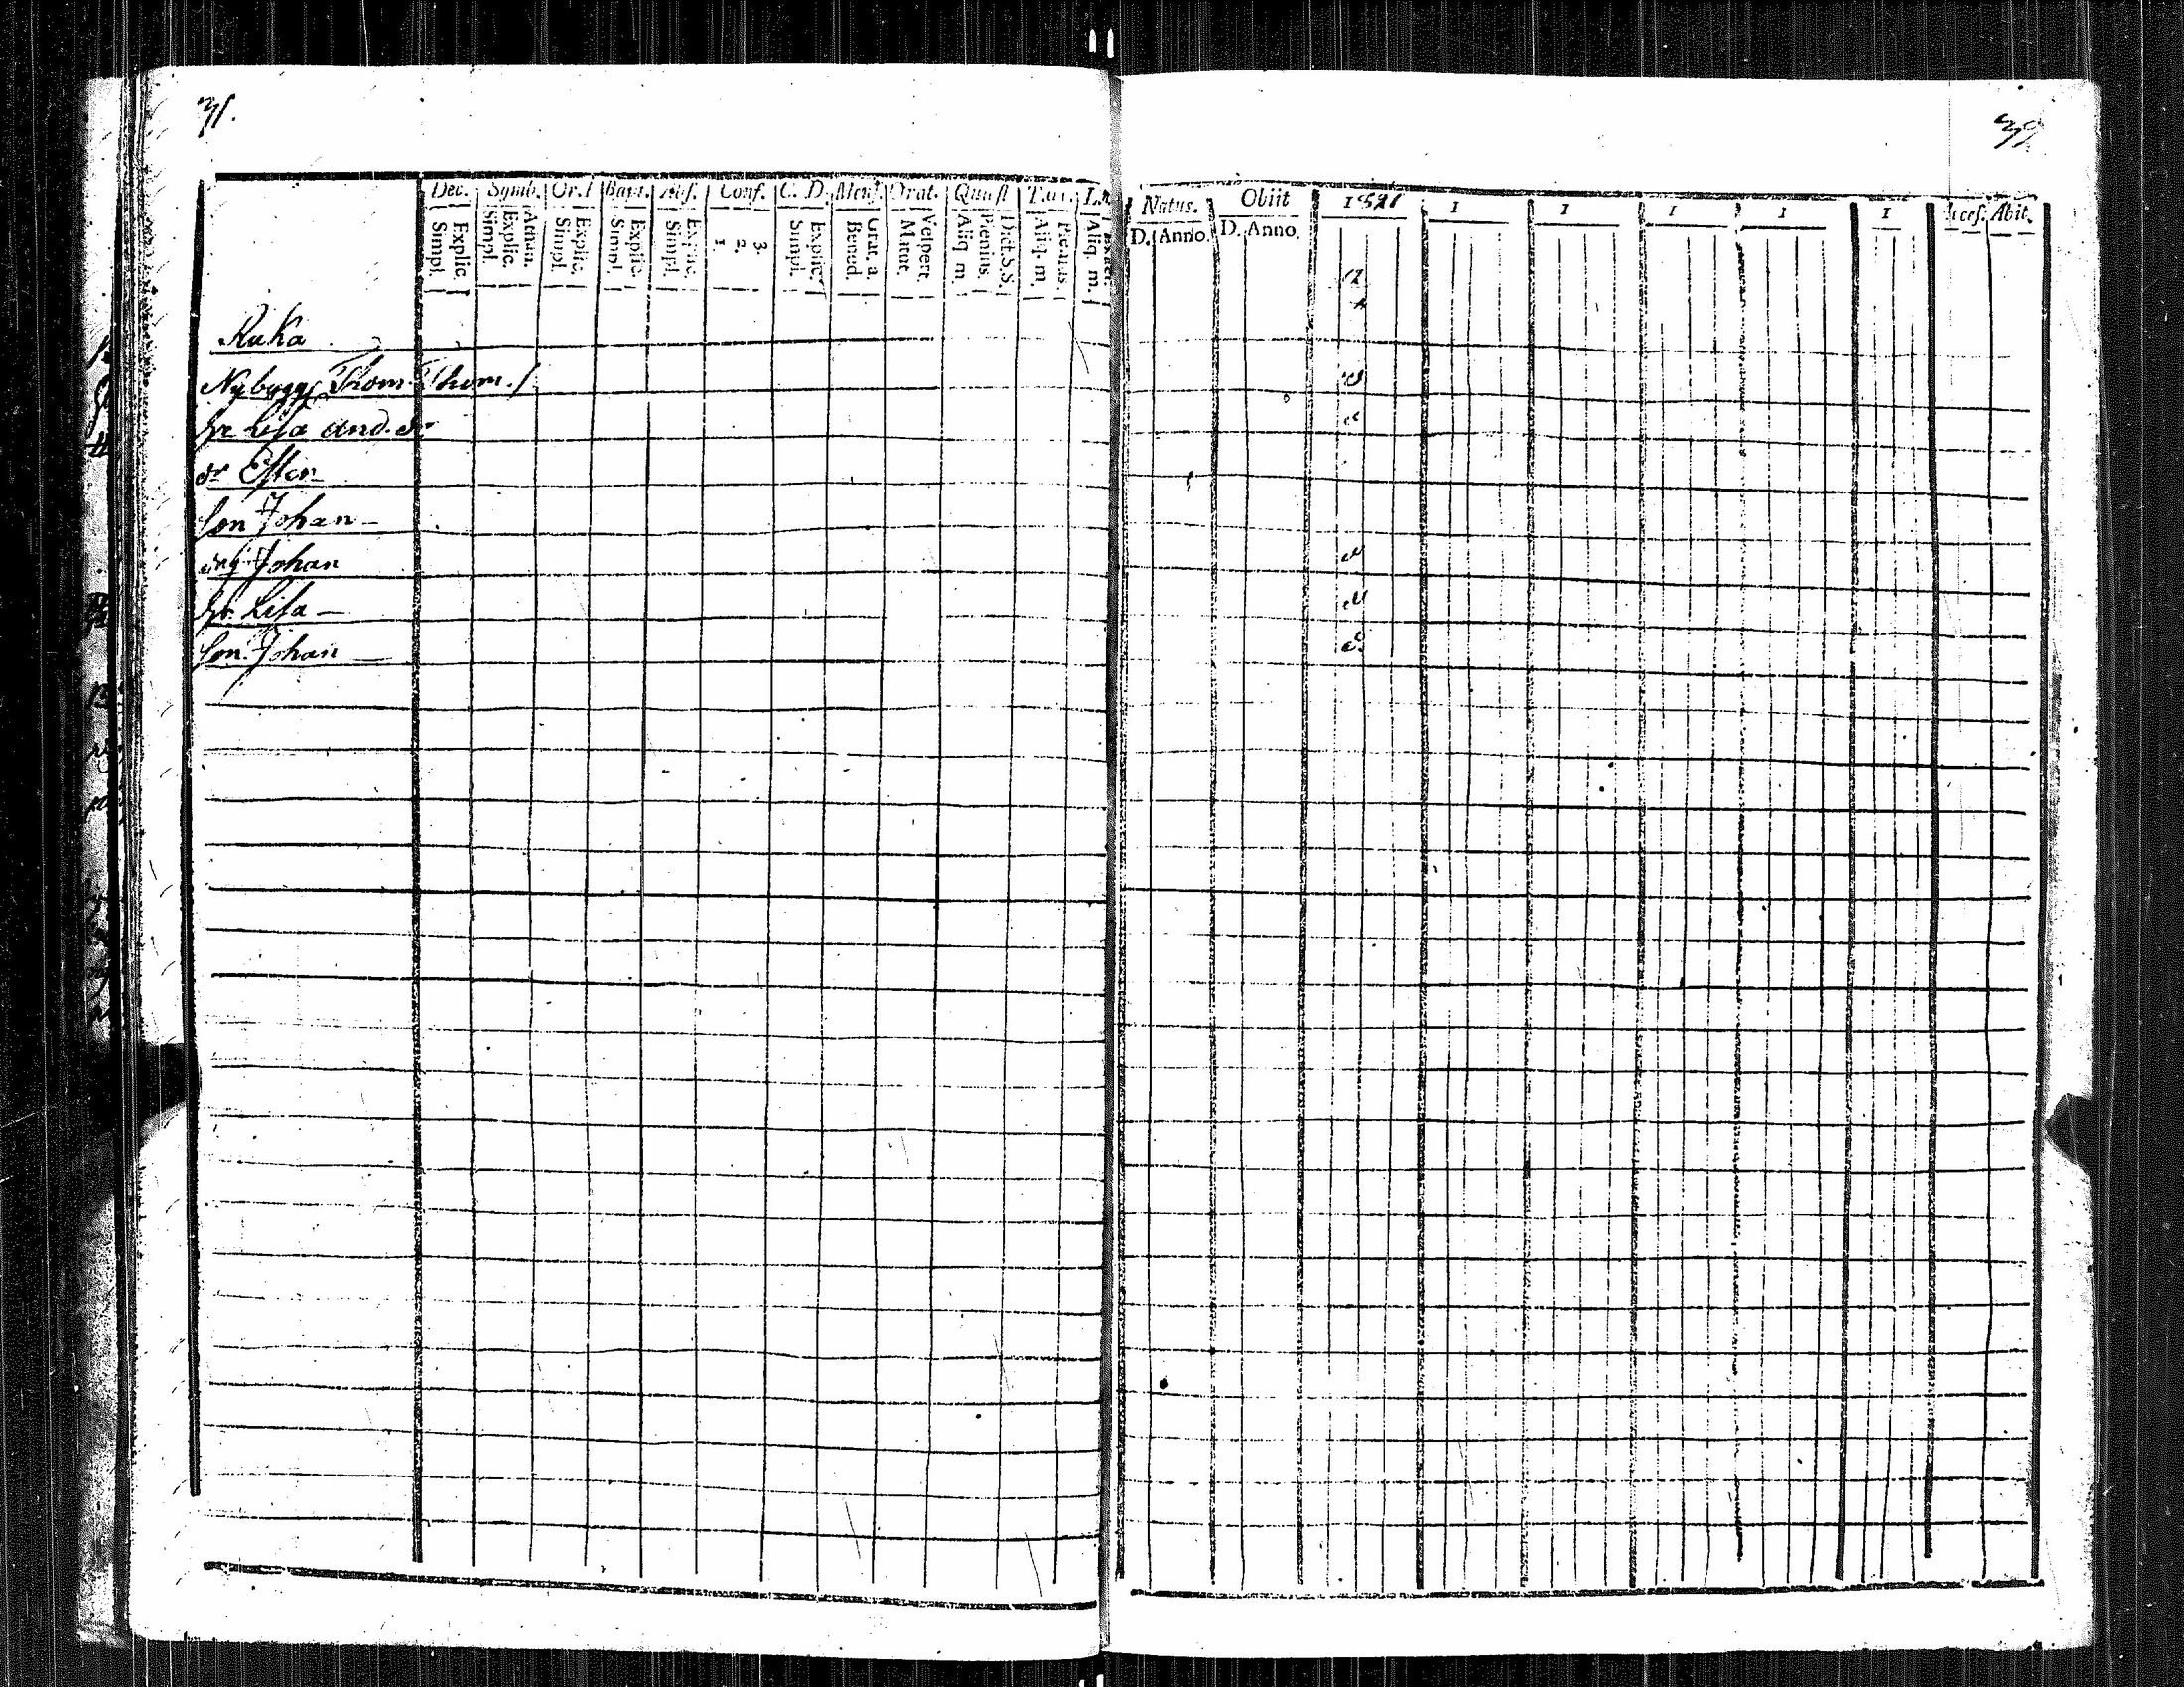 39
Dec. Symb. Or.D Bapt. Abs. Conf. C. D. Mens. Orat. Quæst T.œc.
Simpl. Explic. Simpl. Explic. Athan. Simpl. Explic. Simpl. Explic. Simpl. Explic. 1. 2. 3. Simpl. Explic. Bened. Grat. a. Matut. Vespert. Aliq. m. Plenius. Dict. S.S. Aliq. m. Plenius. Aliq. m.
Natus. Obiit 1821 1 1 1 1 1 Acces. Abit.
D. Anno. D. Anno.
Ruka
Nybygg. Thom. Thom.
hr Lisa And. dr
dr Ester
son Johan
drg Johan
hr. Lisa
son Johan